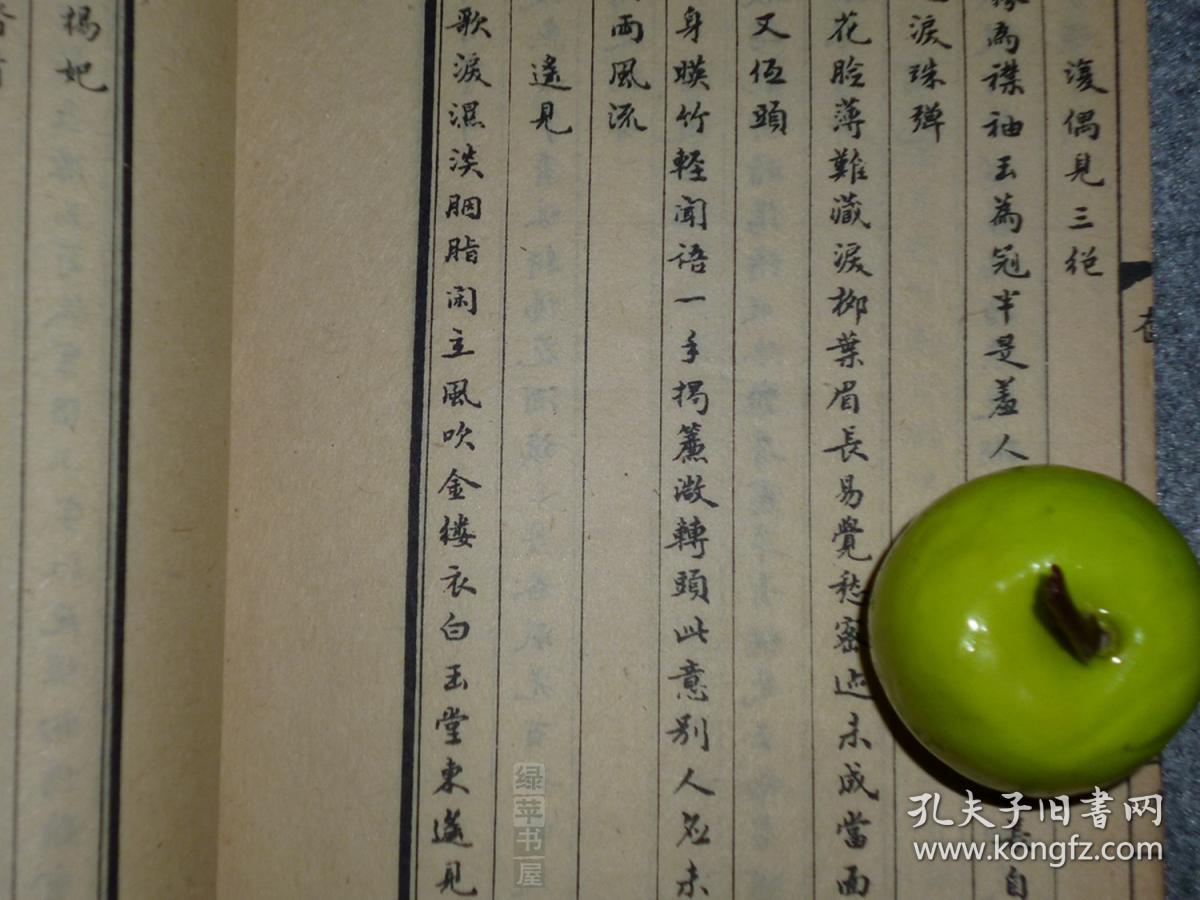 復偶見三絕
為襟袖玉為冠半是羞人
自
淚珠彈
花臉薄難藏淚桺葉眉長易覺愁密迹未成當面
又伍頭
身暎竹輕聞語一手揭簾微轉頭此意別人多未
雨風流
遙見
歌淚濕淡胭脂閑立風吹金縷衣白玉堂東遙見
楊妃
绿苹书屋
孔夫子旧书网
www.kongfz.com